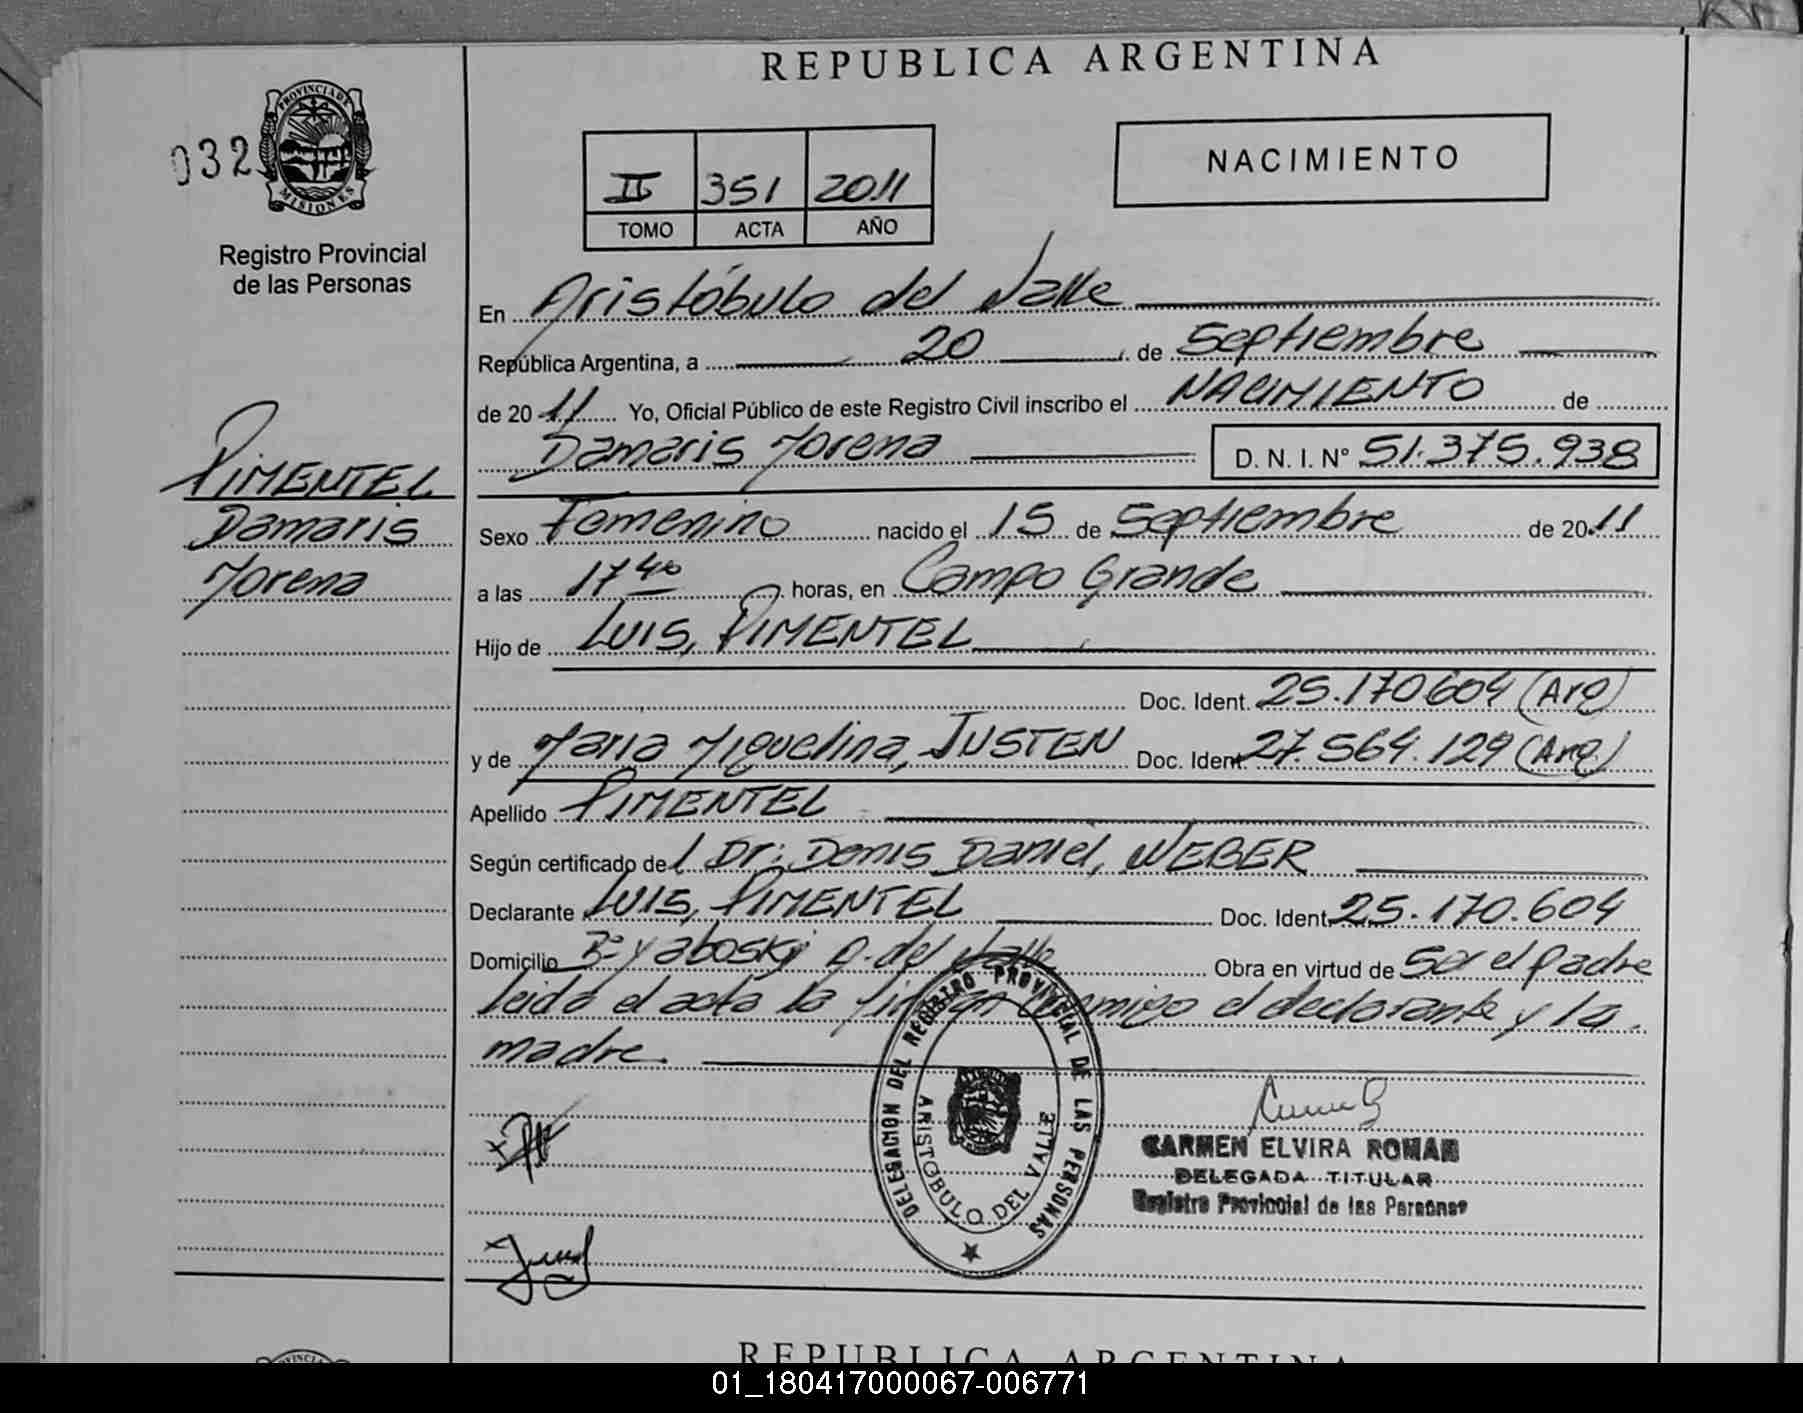 REPUBLICA ARGENTINA
032
PROVINCIA DE
MISIONES
Registro Provincial
de las Personas
II 351 2011
TOMO ACTA AÑO
NACIMIENTO
En Aristóbulo del Valle
República Argentina, a 20 de Septiembre
de 2011 Yo, Oficial Público de este Registro Civil inscribo el NACIMIENTO de
Damaris Morena D. N. I. N° 51.375.938
PIMENTEL
Damaris
Morena
Sexo Femenino nacido el 15 de Septiembre de 2011
a las 17 40 horas, en Campo Grande
Hijo de LUIS, PIMENTEL
Doc. Ident. 25.170604 (Arg)
y de Maria Miguelina, JUSTEN Doc. Ident. 27.564.129 (Arg)
Apellido PIMENTEL
Según certificado de l Dr: Denis Daniel, WEBER
Declarante LUIS, PIMENTEL Doc. Ident. 25.170.604
Domicilio B° Yaboski A. del Valle Obra en virtud de Ser el padre
leida el acta la firman conmigo el declarante y la
madre.
DELEGACION DEL REGISTRO PROVINCIAL DE LAS PERSONAS
ARISTOBULO DEL VALLE
CARMEN ELVIRA ROMAN
DELEGADA TITULAR
Registro Provincial de las Personas
REPUBLICA ARGENTINA
01_180417000067-006771